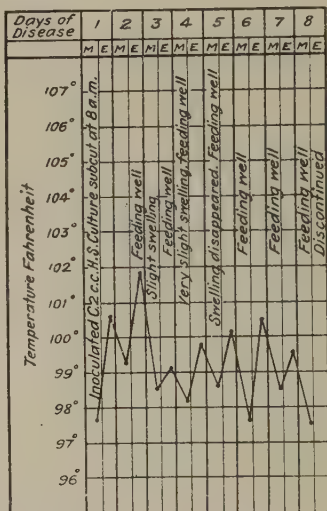 Days of Disease 1 2 3 4 5 6 7 8
M E M E M E M E M E M E M E M E
Temperature Fahrenheit
107°
106°
105°
104°
103°
102°
101°
100°
99°
98°
97°
96°
Inoculated C.2 c.c. H.S. Culture subcut at 8 a.m.
Feeding well
Slight swelling
Feeding well
Very slight swelling, feeding well
Swelling disappeared. Feeding well
Feeding well
Feeding well
Feeding well
Discontinued